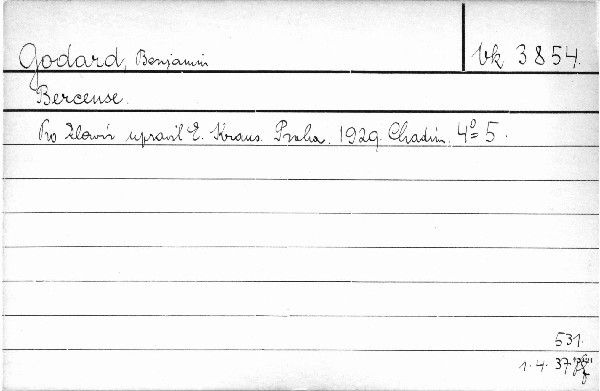 Godard, Benjamin
Vk 3854.
Berceuse.
Pro klavír upravil E. Kraus. Praha. 1929. Chadim. 4º 5.
531.
1. 4. 37